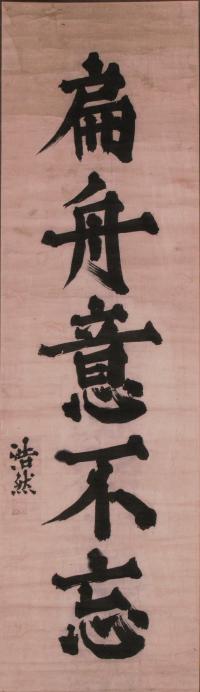 扁舟意不忘
浩然